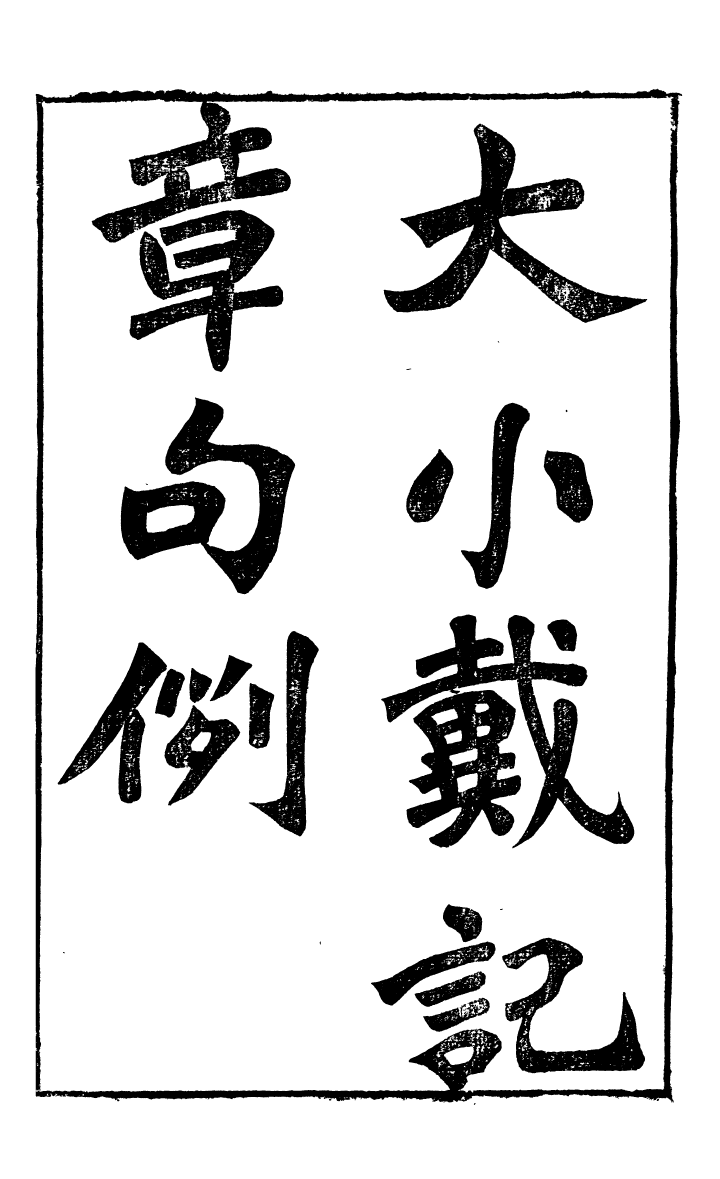 大小戴記
章句例